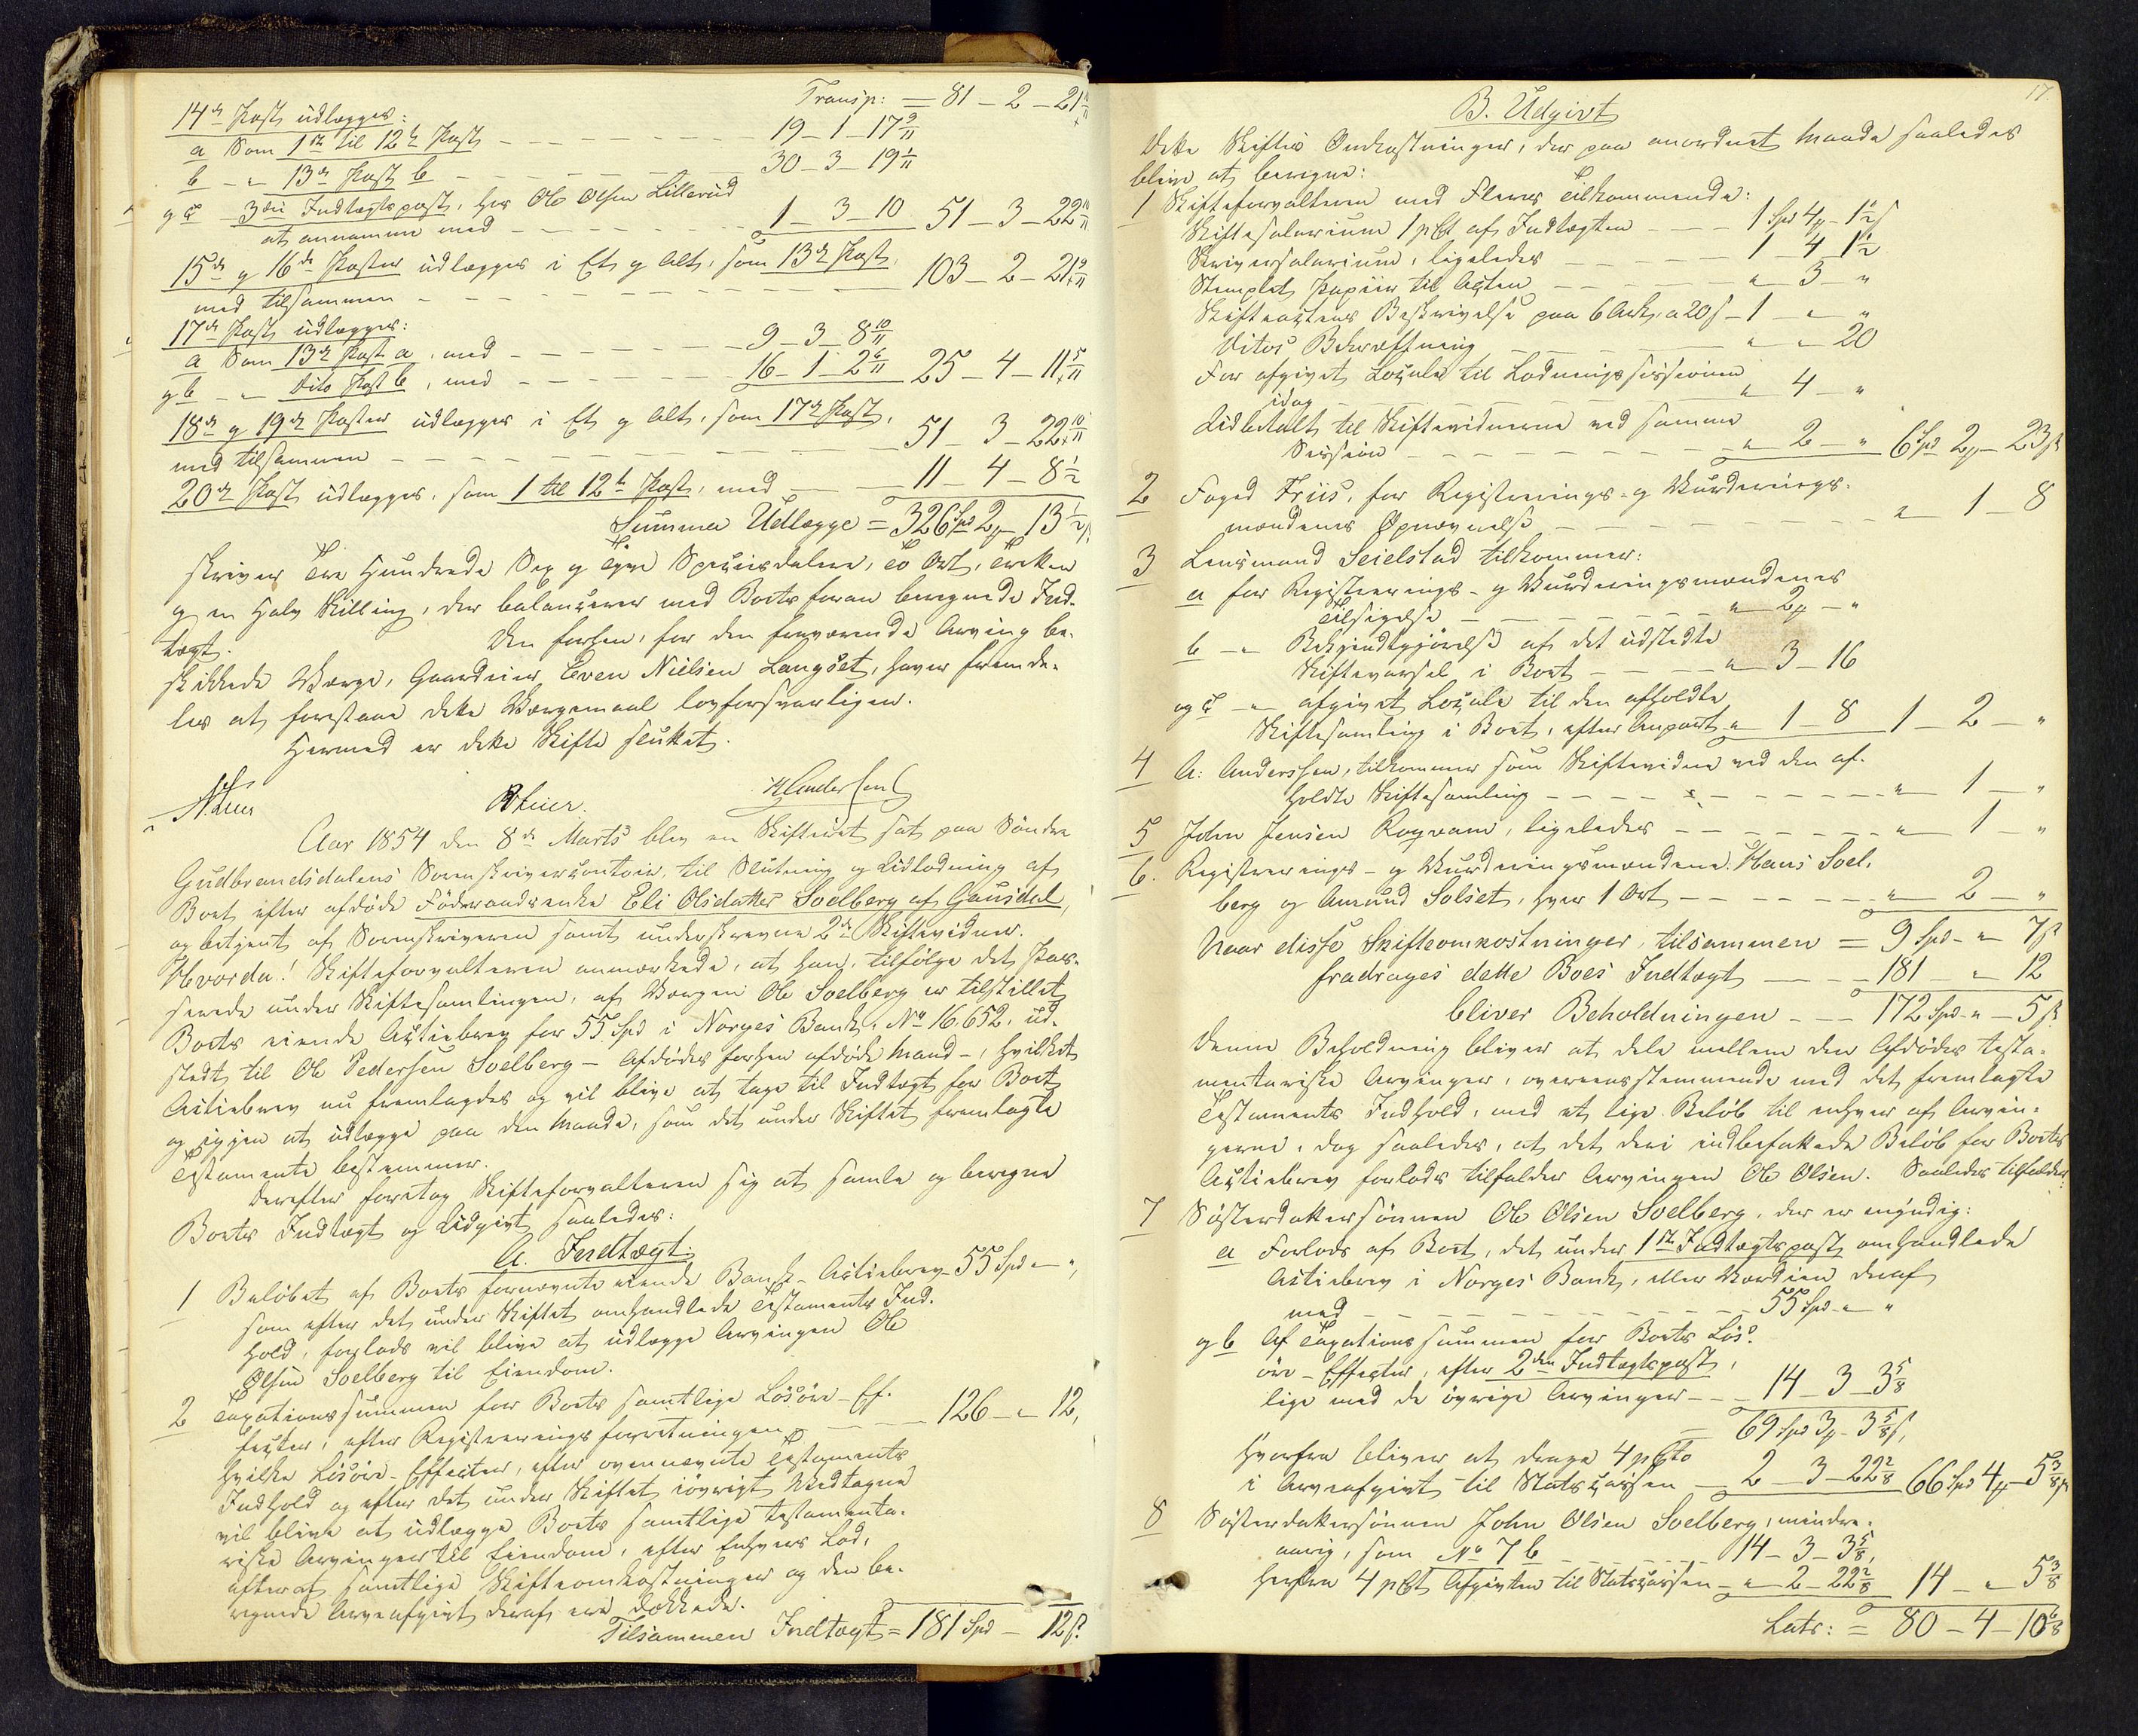 Transp: = 81 - 2 - 21 10/11
14de Post udlægges:
a Som 1ste til 12te Post - - - 19 - 1 - 17 9/11
b - " 13de Post b - - - 30 - 3 - 19 1/11
og c 3die Indtægtspost, hos Ole Olsen Lillerud
at annamme med - - - 1 - 3 - 10 51 - 3 - 22 10/11
15de og 16de Poster udlægges i Et og Alt, som 13de Post,
med tilsammen - - - 103 - 2 - 21 9/11
17de Post udlægges:
a Som 13de Post a, med - - - 9 - 3 - 8 10/11
og b - " dito Post b, med - - - 16 - 1 - 2 6/11 25 - 4 - 11 5/11
18de og 19de Poster udlægges i Et og Alt, som 17de Post,
med tilsammen - - - 51 - 3 - 22 10/11
20de Post udlægges, som 1 til 12te Post, med - - 11 - 4 - 8 1/2
Summa Udlægge = 326 Spd 2 # 13 1/2 s.
skriver Tre Hundrede Sex og Tyve Speciesdalere, To Ort, Tretten
og en Halv Skilling, der balancerer med Boets foran beregnede Ind-
tægt. Den forhen, for den fraværende Arving be-
skikkede Værge, Gaardeier Even Nielsen Langset, haver fremde-
les at forestaae dette Værgemaal lovforsvarligen.
Hermed er dette Skifte sluttet.
Aar 1854 den 8de Marts blev en Skifteret sat paa Søndre
Gudbrandsdalens Sorenskrivercontoir, til Slutning og Udlodning af
Boet efter afdøde Føderaadsenke Eli Olsdatter Soelberg af Gausdal,
og betjent af Sorenskriveren samt underskrevne 2de Skiftevidner.
Hvorda! Skifteforvalteren anmærkede, at han, tilfølge det Pas-
serede under Skiftesamlingen, af Værgen Ole Soelberg er tilstillet
Boets eiende Actiebrev for 55 Spd i Norges Bank, No 16.652, ud-
stedt til Ole Pedersen Soelberg - Afdødes forhen afdøde Mand -, hvilket
Actiebrev nu fremlagdes og vil blive at tage til Indtægt for Boet
og igjen at udlægge paa den Maade, som det under Skiftet fremlagte
Testamente bestemmer.
Derefter foretog Skifteforvalteren sig at samle og beregne
Boets Indtægt og Udgivt saaledes:
A. Indtægt.
1 Beløbet af Boets fornævnte eiende Bank-Actiebrev - 55 Spd - " ",
som efter det under Skiftet omhandlede Testaments Ind-
hold, forlods vil blive at udlægge Arvingen Ole
Olsen Soelberg til Eiendom.
2 Taxationssummen for Boets samtlige Løsøre-Ef-
fecter, efter Registreringsforretningen - - - 126 - " 12,
hvilke Løsøre-Effecter, efter ovennævnte Testaments
Indhold og efter det under Skiftet iøvrigt Vedtagne
vil blive at udlægge Boets samtlige testamenta-
riske Arvinger til Eiendom, efter Enhvers Lod,
efterat samtlige Skifteomkostninger og den be-
regnede Arveafgivt deraf ere dækkede.
Tilsammen Indtægt = 181 Spd - 12 s.
17.
B. Udgivt
Dette Skiftes Omkostninger, der paa anordnet Maade saaledes
blive at beregne:
1 Skifteforvalteren med Fleres Tilkommende:
Skiftesalarium 1 pCt af Indtægten - - - 1 Spd 4 # - 1 1/2 s
Skriversalarium, ligeledes - - - 1 4 1 1/2
Stemplet Papiir til Acten - - - " 3 - "
Skifteactens Beskrivelse paa 6 Ark, a 20 s - 1 - " - "
Ditos Bekræftning - - - " - " 20
For afgivet Locale til Lodningssessionen
idag - - - " 4 - "
Udbetalt til Skiftevidnerne ved samme
Session - - - " 2 - " 6 Spd 2 # - 23 s
2 Foged Friis, for Registrerings- og Vurderings-
mændenes Opnævnelse - - - " 1 - 8
3 Lensmand Seielstad tilkommer:
a for Registrerings- og Vurderingsmændenes
Tilsigelse - - - " 2 # - "
b - " Bekjendtgjørelse af det udstedte
Skiftevarsel i Boet - - - " 3 - 16
og c - " afgivet Locale til den afholdte
Skiftesamling i Boet, efter Anpart " 1 - 8 1 - 2 - "
4 A: Anderssen, tilkommer som Skiftevidne ved den af-
holdte Skiftesamling - - - " 1 - "
5 John Jensen Rogvam, ligeledes - - - " 1 - "
6. Registrerings- og Vurderingsmændene: Hans Soel-
berg og Amund Solset, hver 1 Ort - - - " 2 - "
Naar disse Skifteomkostninger, tilsammen = 9 Spd - " 7 s
fradrages dette Boes Indtægt - - - 181 " 12
bliver Beholdningen - - - 172 Spd - " - 5 s.
Denne Beholdning bliver at dele mellem den Afdødes testa-
mentariske Arvinger, overeensstemmende med det fremlagte
Testaments Indhold, med et lige Beløb til enhver af Arvin-
gerne, dog saaledes, at det deri indbefattede Beløb for Boets
Actiebrev forlods tilfalder Arvingen Ole Olsen. Saaledes tilfalder:
7 Søsterdattersønnen Ole Olsen Soelberg, der er myndig:
a Forlods af Boet, det under 1ste Indtægtspost omhandlede
Actiebrev i Norges Bank, eller Værdien deraf
med - - - 55 Spd - " "
og b Af Taxationssummen for Boets Løs-
øre-Effecter, efter 2den Indtægtspost,
lige med de øvrige Arvinger - - 14 - 3 - 3 5/8
= 69 Spd 3 # - 3 5/8 s,
Hvorfra bliver at drage 4 pCto
i Arveafgivt til Statscassen - 2 - 3 - 22 2/8 66 Spd 4 # - 5 3/8 s
8 Søsterdattersønnen John Olsen Soelberg, mindre-
aarig, som No 7 b - - - 14 - 3 - 3 5/8,
herfra 4 pCt Afgivten til Statscassen - " 2 - 22 2/8 14 - " 5 3/8
Lats: = 80 - 4 - 10 6/8